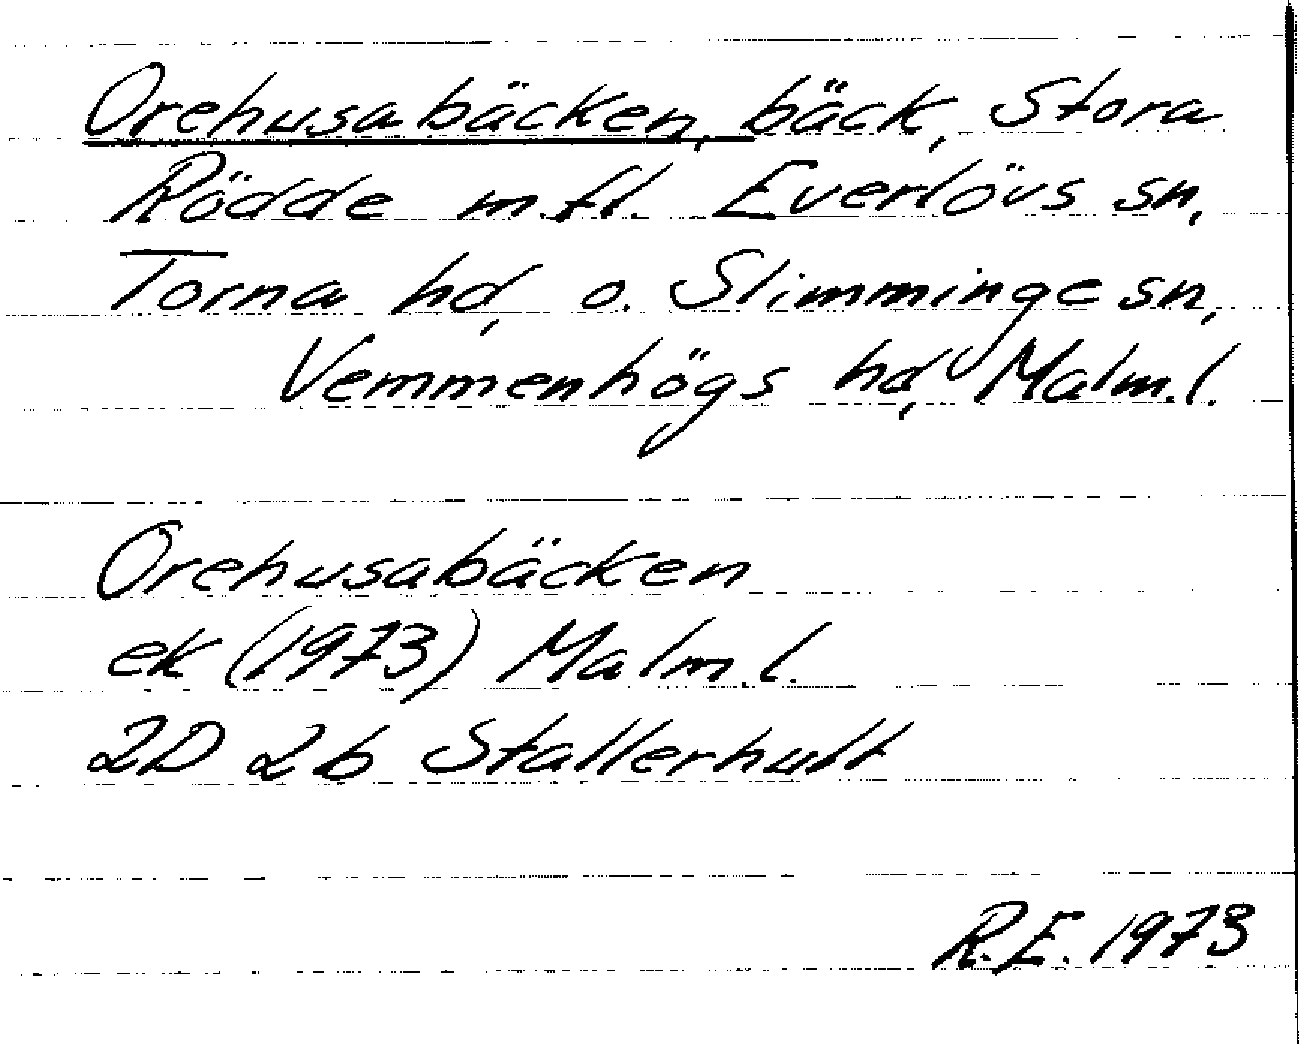 Orehusabäcken, bäck, Stora
Rödde m.fl. Everlövs sn,
Torna hd, o. Slimminge sn,
Vemmenhögs hd, Malm.l.
Orehusabäcken
ek (1973) Malm.l.
2D 2b Stallerhult
R.E. 1973